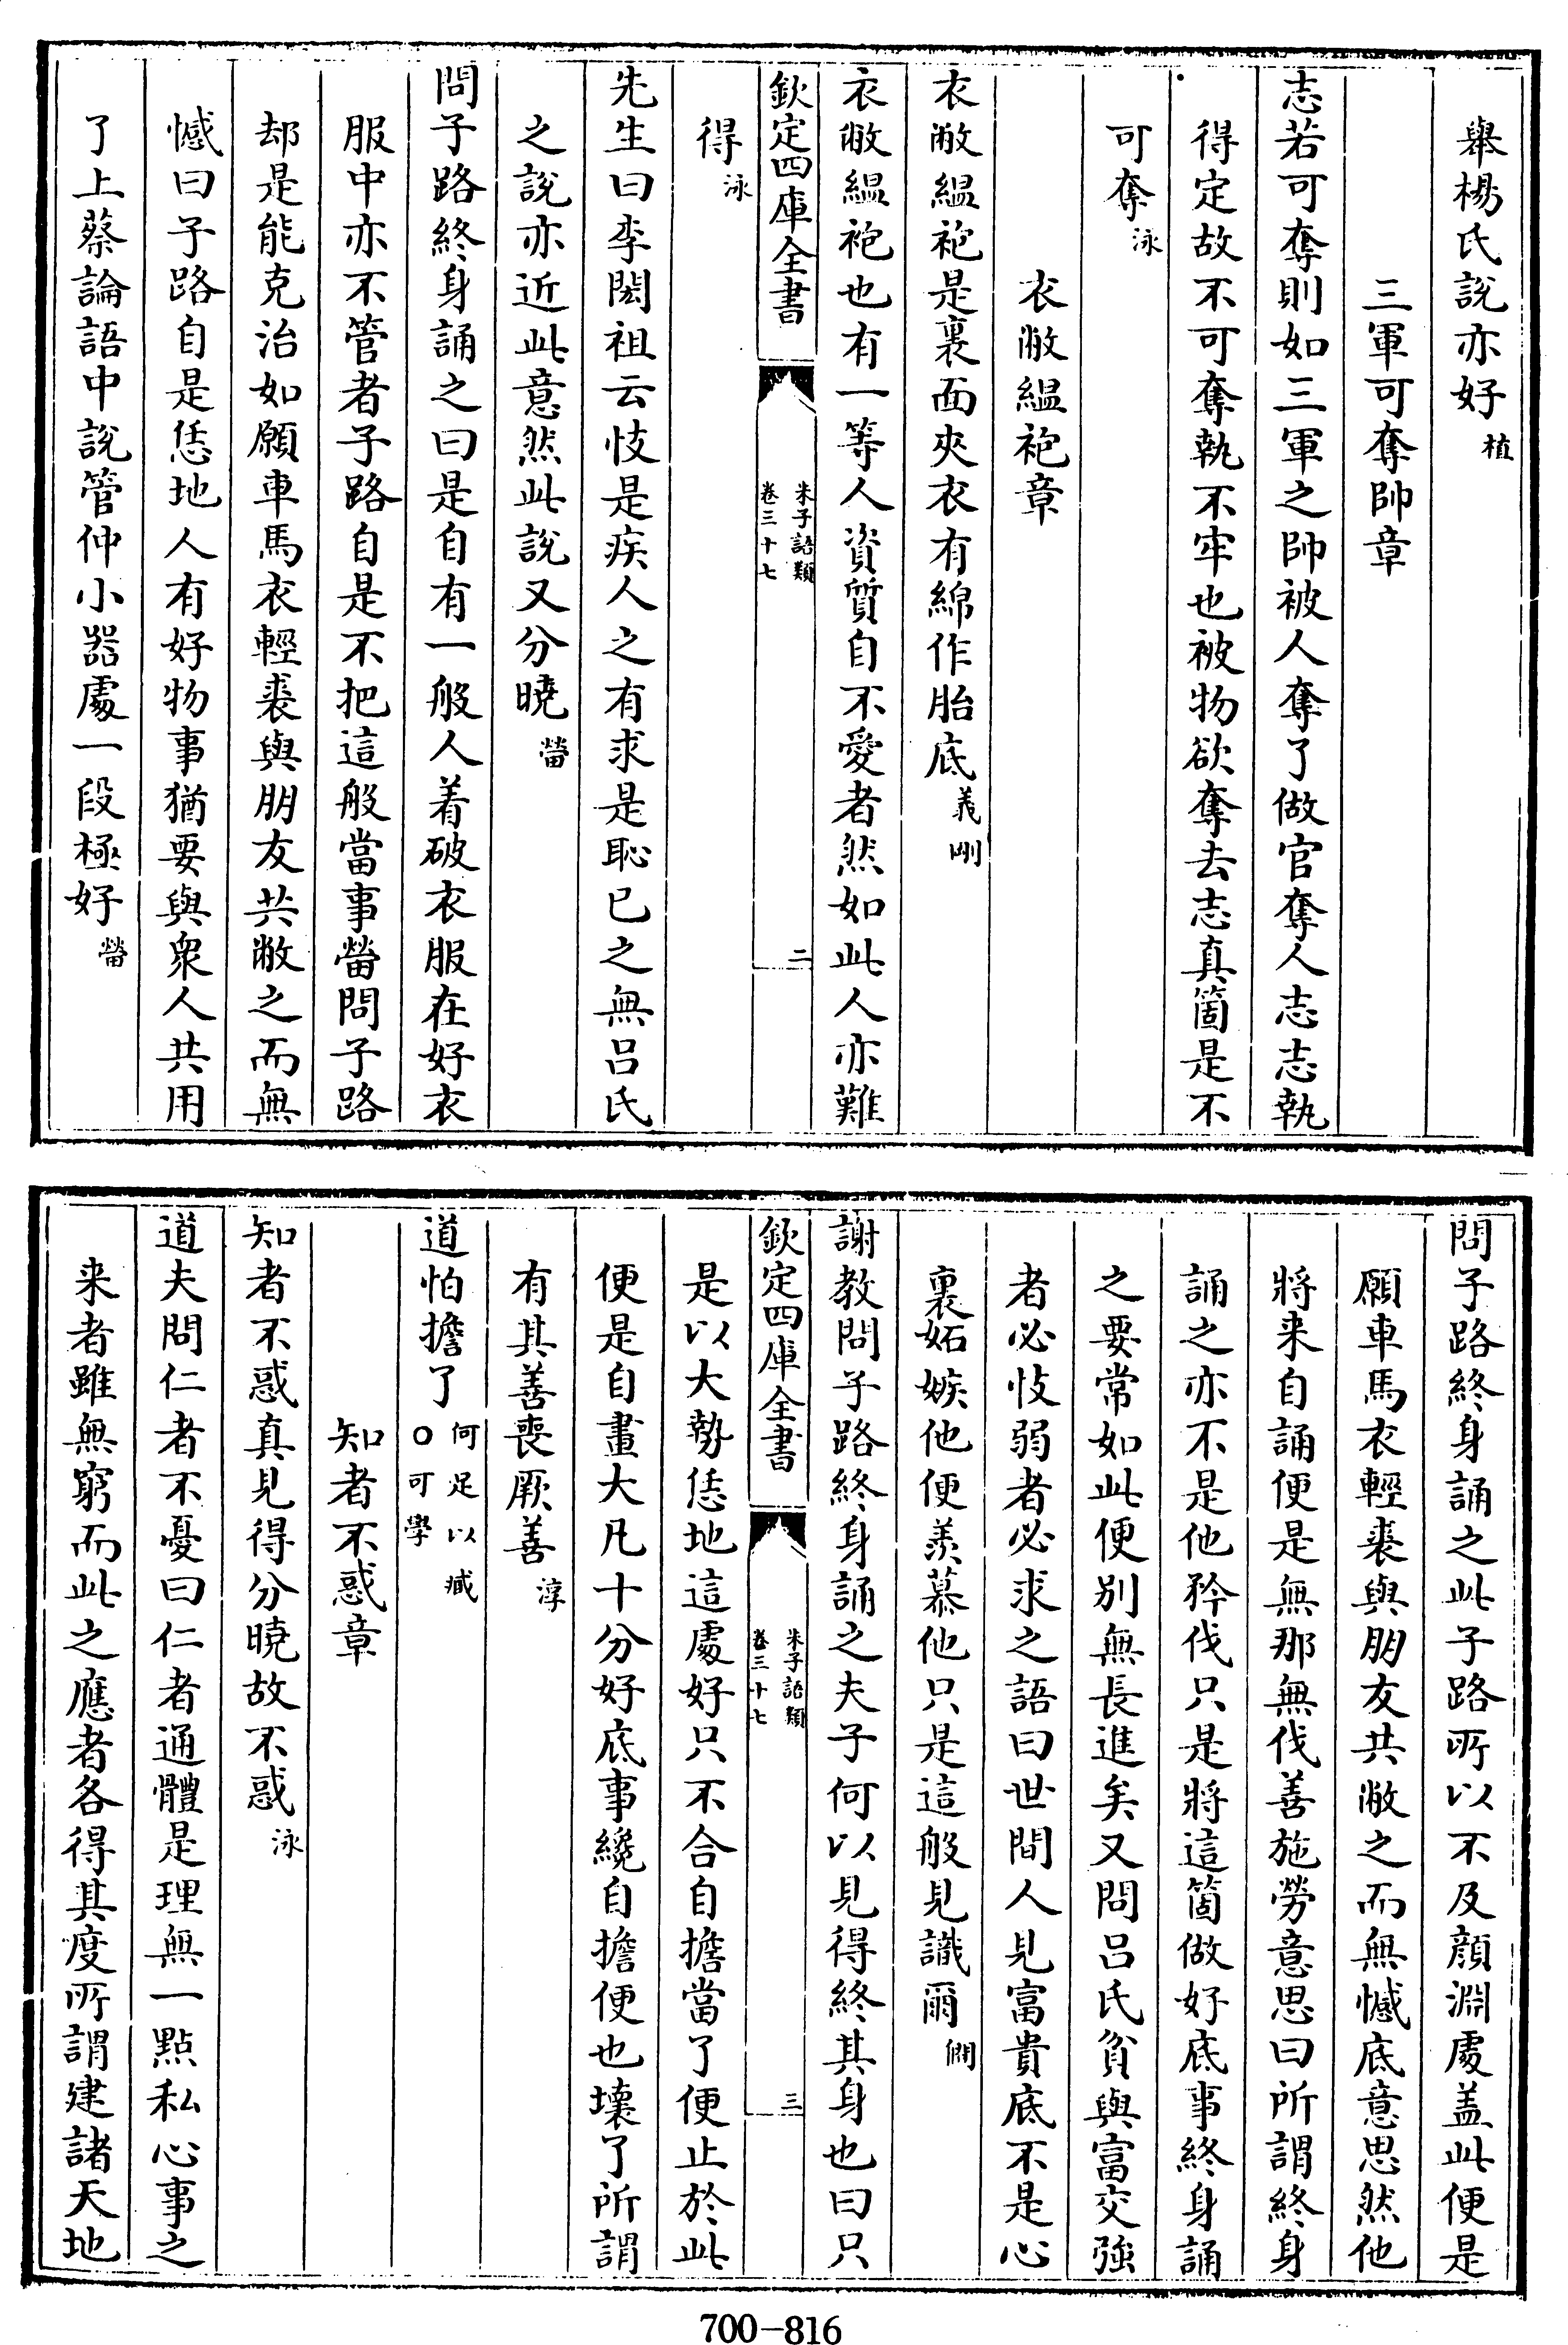 舉楊氏說亦好植
三軍可奪帥章
志若可奪則如三軍之帥被人奪了做官奪人志志執
得定故不可奪執不牢也被物欲奪去志真箇是不
可奪泳
衣敝縕袍章
衣敝縕袍是裏面夾衣有綿作胎底義剛
衣敝縕袍也有一等人資質自不愛者然如此人亦難
欽定四庫全書
朱子語類
卷三十七
二
得泳
先生曰李閎祖云忮是疾人之有求是恥已之無呂氏
之說亦近此意然此說又分曉㽦
問子路終身誦之曰是自有一般人着破衣服在好衣
服中亦不管者子路自是不把這般當事㽦問子路
却是能克治如願車馬衣輕裘與朋友共敝之而無
憾曰子路自是恁地人有好物事猶要與衆人共用
了上蔡論語中說管仲小器處一段極好㽦
問子路終身誦之此子路所以不及顔淵處盖此便是
願車馬衣輕裘與朋友共敝之而無憾底意思然他
將来自誦便是無那無伐善施勞意思曰所謂終身
誦之亦不是他矜伐只是將這箇做好底事終身誦
之要常如此便别無長進矣又問呂氏貧與富交強
者必忮弱者必求之語曰世間人見富貴底不是心
裏妬嫉他便羨慕他只是這般見識爾僩
謝教問子路終身誦之夫子何以見得終其身也曰只
欽定四庫全書
朱子語類
卷三十七
三
是以大勢恁地這處好只不合自擔當了便止於此
便是自畫大凡十分好底事纔自擔便也壞了所謂
有其善喪厥善淳
道怕擔了何足以臧
○可學
知者不惑章
知者不惑真見得分曉故不惑泳
道夫問仁者不憂曰仁者通體是理無一點私心事之
来者雖無窮而此之應者各得其度所謂建諸天地
700-816